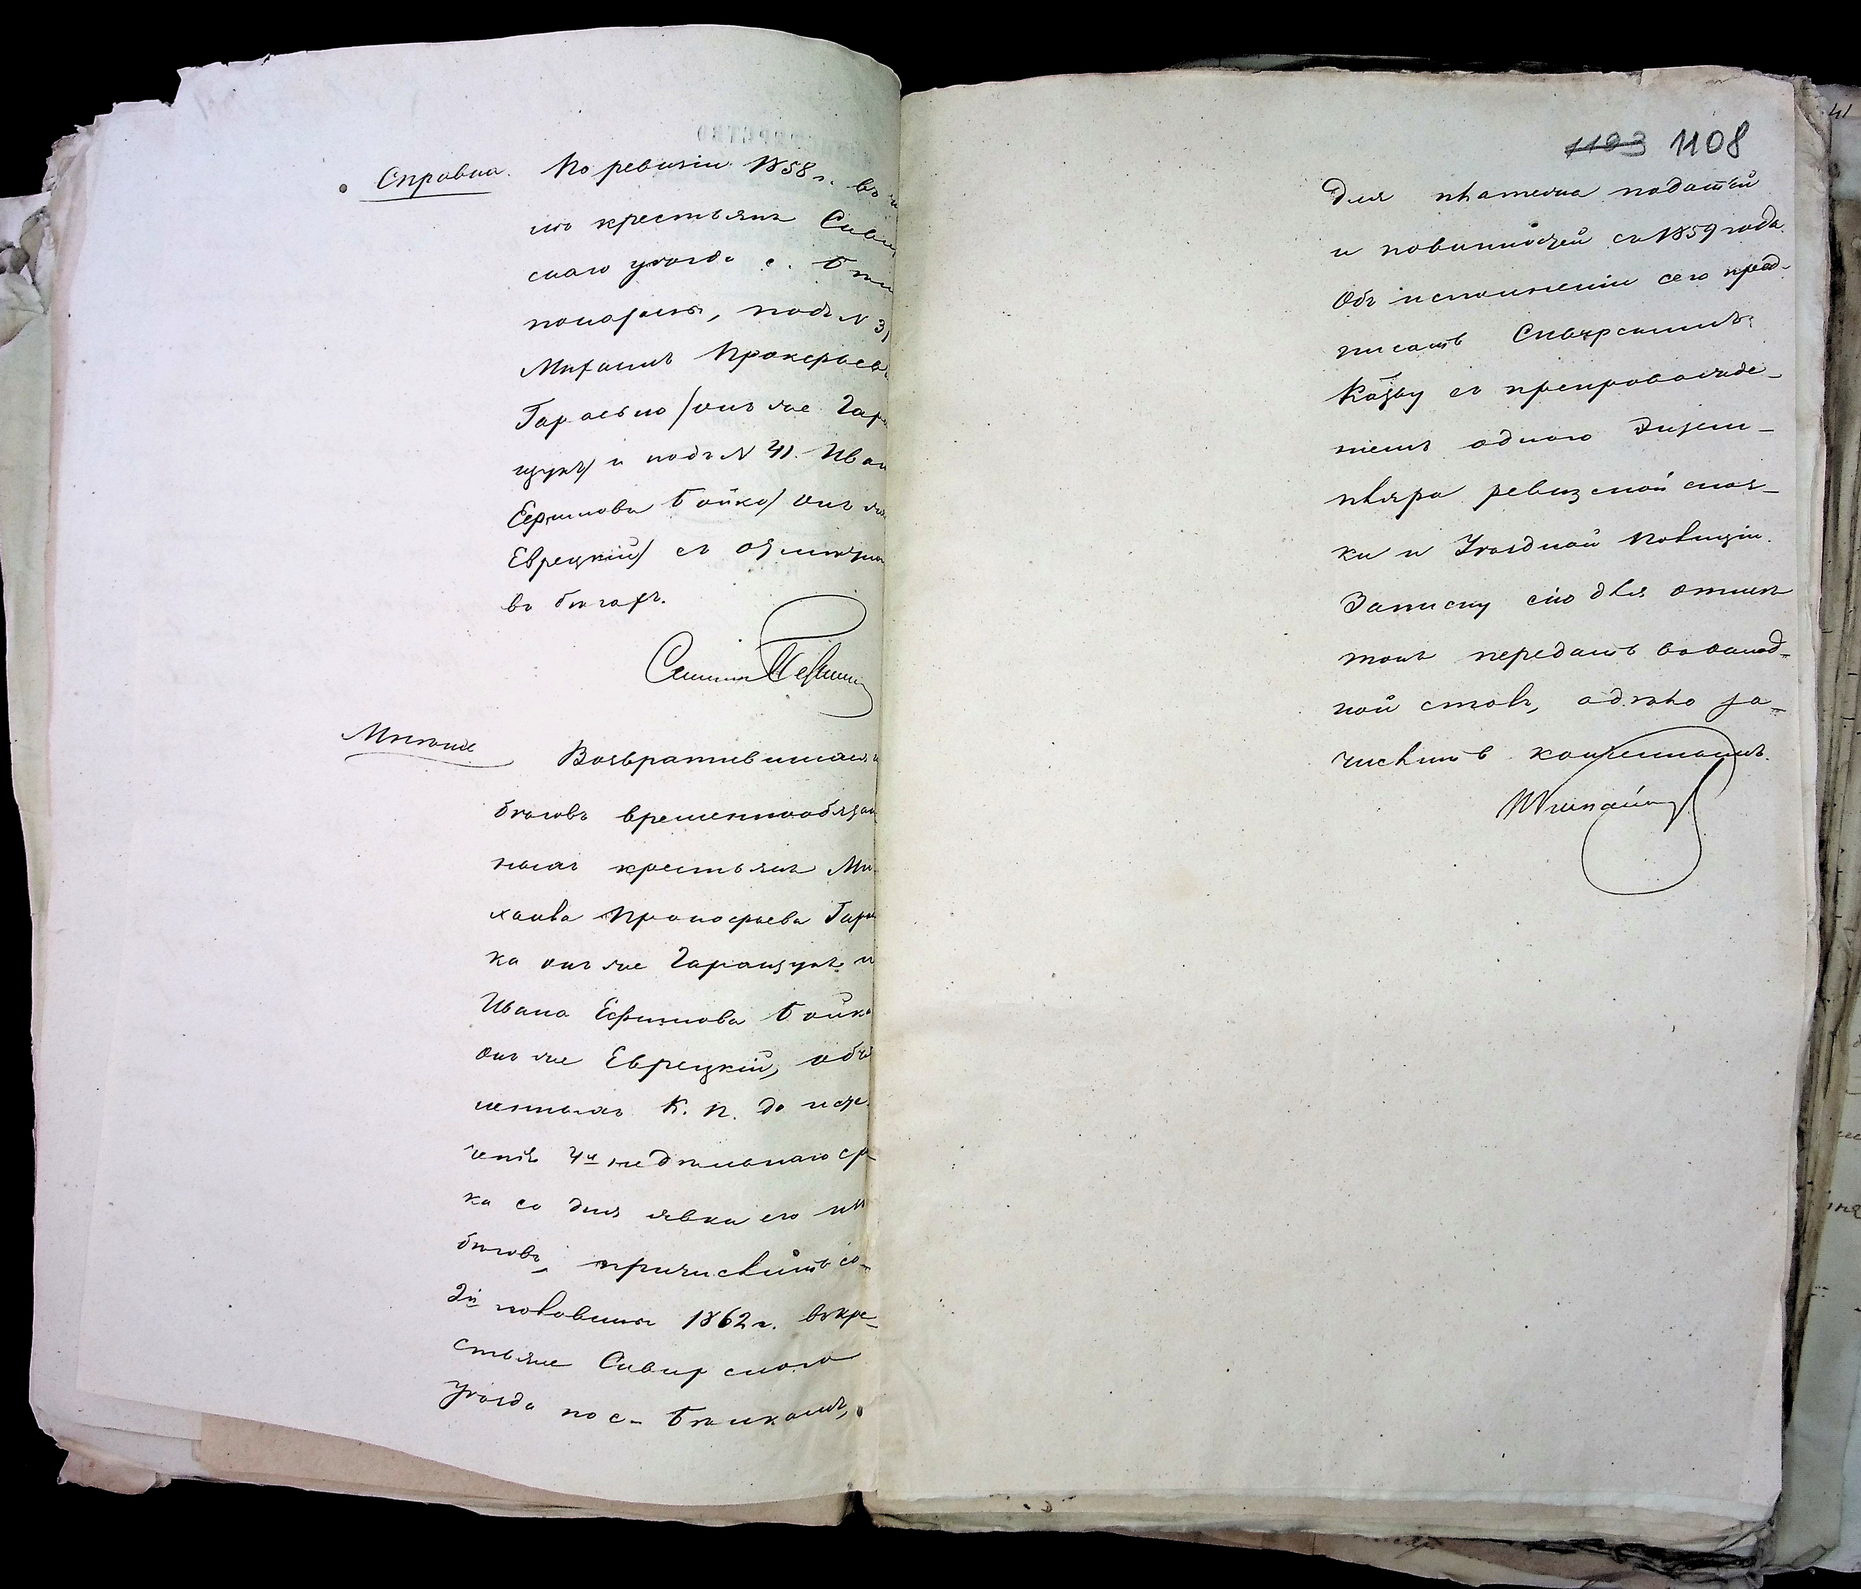 Справка. По ревизіи 1858 г. въ
крестьянъ Сквир
скаго уѣзда с. Бѣли
под N 3
Михаилъ Прокофьевъ
Гарасько /онъ же Гара
щукъ/ и подъ N 41. Иван
Ефимовъ Бойко/ онъ же
Еврецкій/ съ отмѣткою
въ бѣгахъ.
Мнѣніе
Возвратившихся изъ
бѣговъ временнообязан
ныхъ крестьянъ Ми-
хаила Прокофьева Гарась
ка онъ же Гаращукъ и
Ивана Ефимова Бойка
онъ же Еврецкій, объя
К. П. до исте-
ченія 4х недѣльнаго сро
ка со дня явки его изъ
бѣговъ, причислить со
2й половины 1862 г. въ кре-
стьяне Сквирскаго
Уѣзда по с. Бѣликамъ,
1103 1108
для платежа податей
и повинностей съ 1859 года.
Объ исполненіи сего пред-
писать Сквирскимъ
Каз̃ву съ препровожде-
ніемъ одного Экзем-
пляра ревизской сказ-
ки и Уѣздной Полиціи.
Записку сію для отмѣ
токъ передать
ной столъ, а дѣло за-
числить конченнымъ.
41